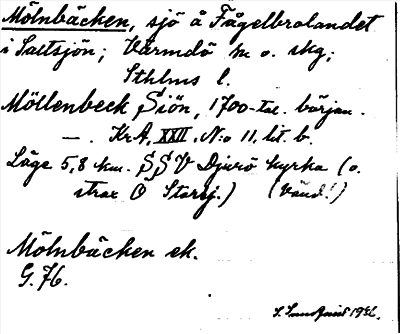 Mölnbäcken, sjö å Fågelbrolandet
i Saltsjön; Värmdö sn o. skg;
Sthlms l.
Möllenbeck Siön, 1700-tal. början.
—. KrA, XXII, N:o 11, lit. b.
Läge 5,8 km. SSV Djurö kyrka (o.
strax O Storsj.) (Vänd!)
Mölnbäcken ek.
G. 76.
1936.